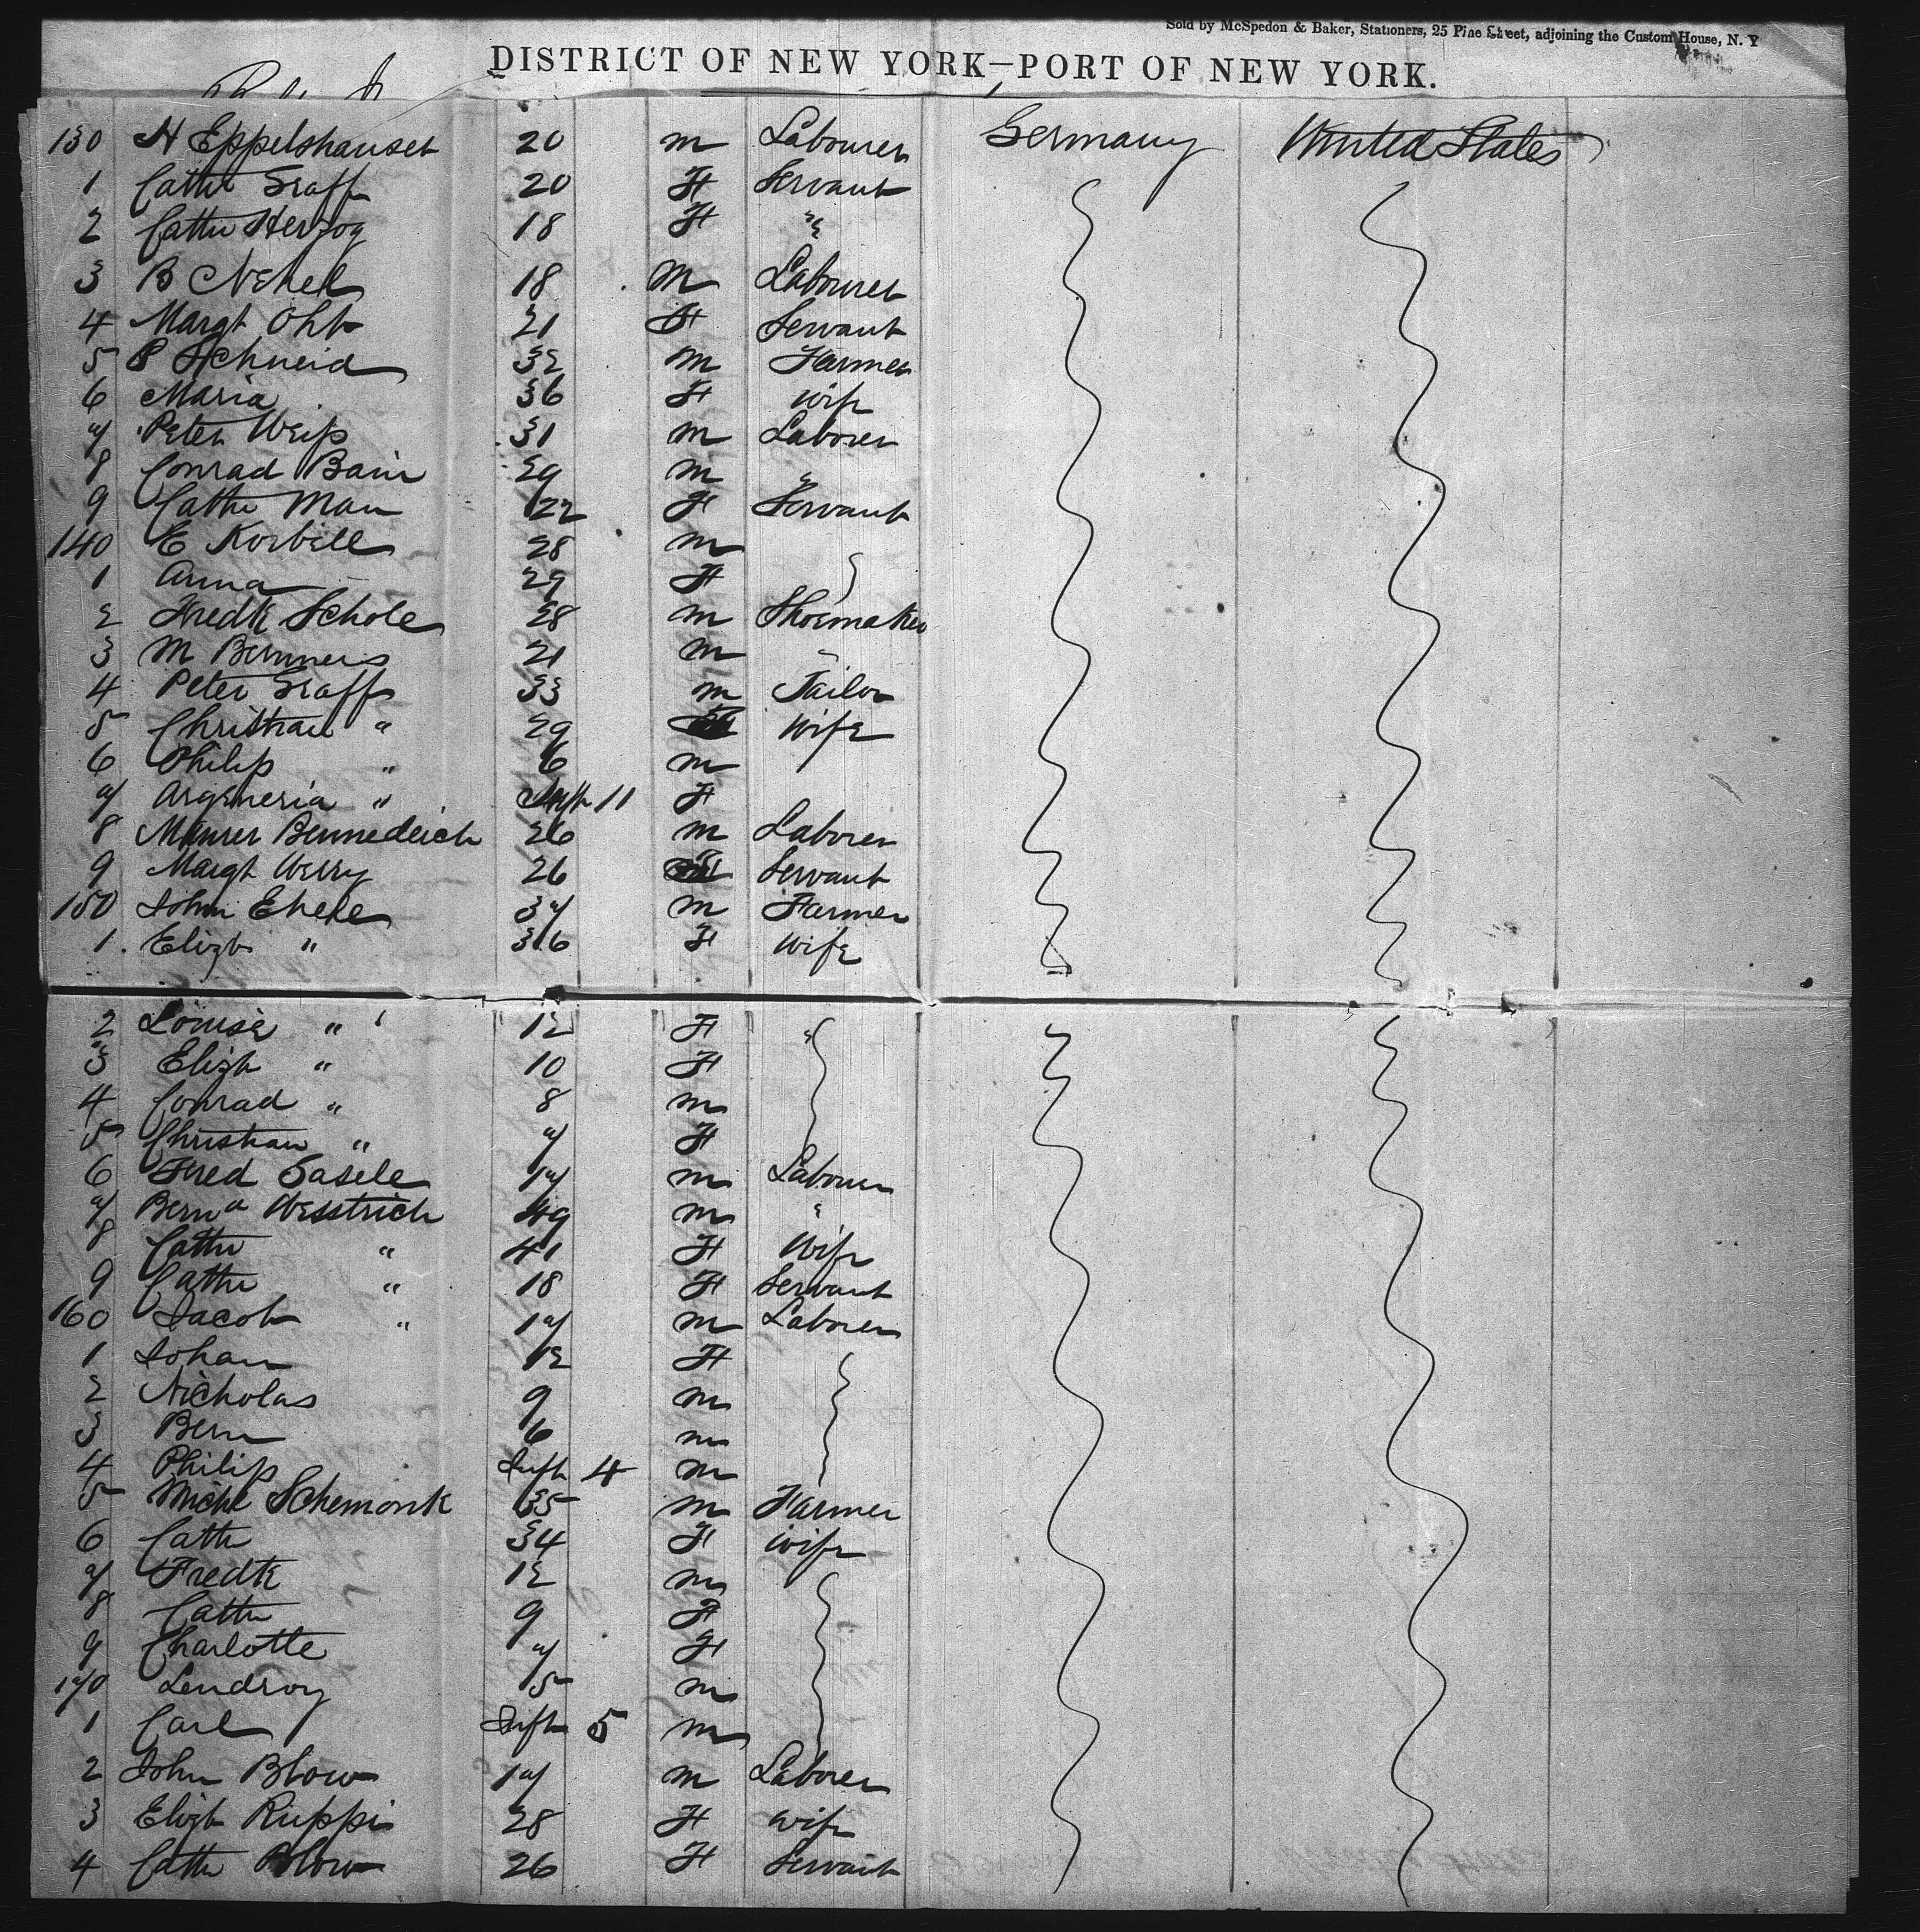 Sold by McSpedon & Baker, Stationers, 25 Pine Street, adjoining the Custom House, N. Y
DISTRICT OF NEW YORK—PORT OF NEW YORK.
130 H Eppelshauser 20 m Labourer Germany United States
1 Cathe Graff 20 F Servant
2 Cathe Herzog 18 F "
3 B 18 M Labourer
4 Margt Ohb 21 F Servant
5 P Schneid 32 m Farmer
6 Maria 36 F Wife
7 Peter Weiß 31 m Laborer
8 Conrad Bair 29 m "
9 Cathe Man 22 F Servant
140 E Korbell 28 m
1 Anna 29 F
2 Fredk Schole 28 m Shoemaker
3 M Bermers 21 m "
4 Peter Graff 33 m Tailor
5 Christian " 29 Wife
6 Philip " 6 m
7 " Inft 11 F
8 Maurer Bennedeich 26 m Laborer
9 Margt Werry 26 Servant
150 John Ebele 37 m Farmer
1 Elizb " 36 F Wife
2 Louise " 12 F "
3 Elizb " 10 F
4 Conrad " 8 m
5 Christian " 7 F
6 Fred Gasele 17 m Labourer
7 Berna Wesstrich 49 m "
8 Cathe " 41 F Wife
9 Cathe " 18 F Servant
160 Jacob " 17 m Laborer
1 Johan 12 F
2 Nicholas 9 m
3 Bern 6 m
4 Philip Inft 4 m
5 Michl Schemonk 35 m Farmer
6 Cathe 34 F Wife
7 Fredk 12 m
8 Cathe 9 F
9 Charlotte 7 F
170 5 m
1 Carl Inft 5 m
2 John Blow 17 m Laborer
3 Elizb Ruppi 28 F Wife
4 Cathe Blow 26 F Servant